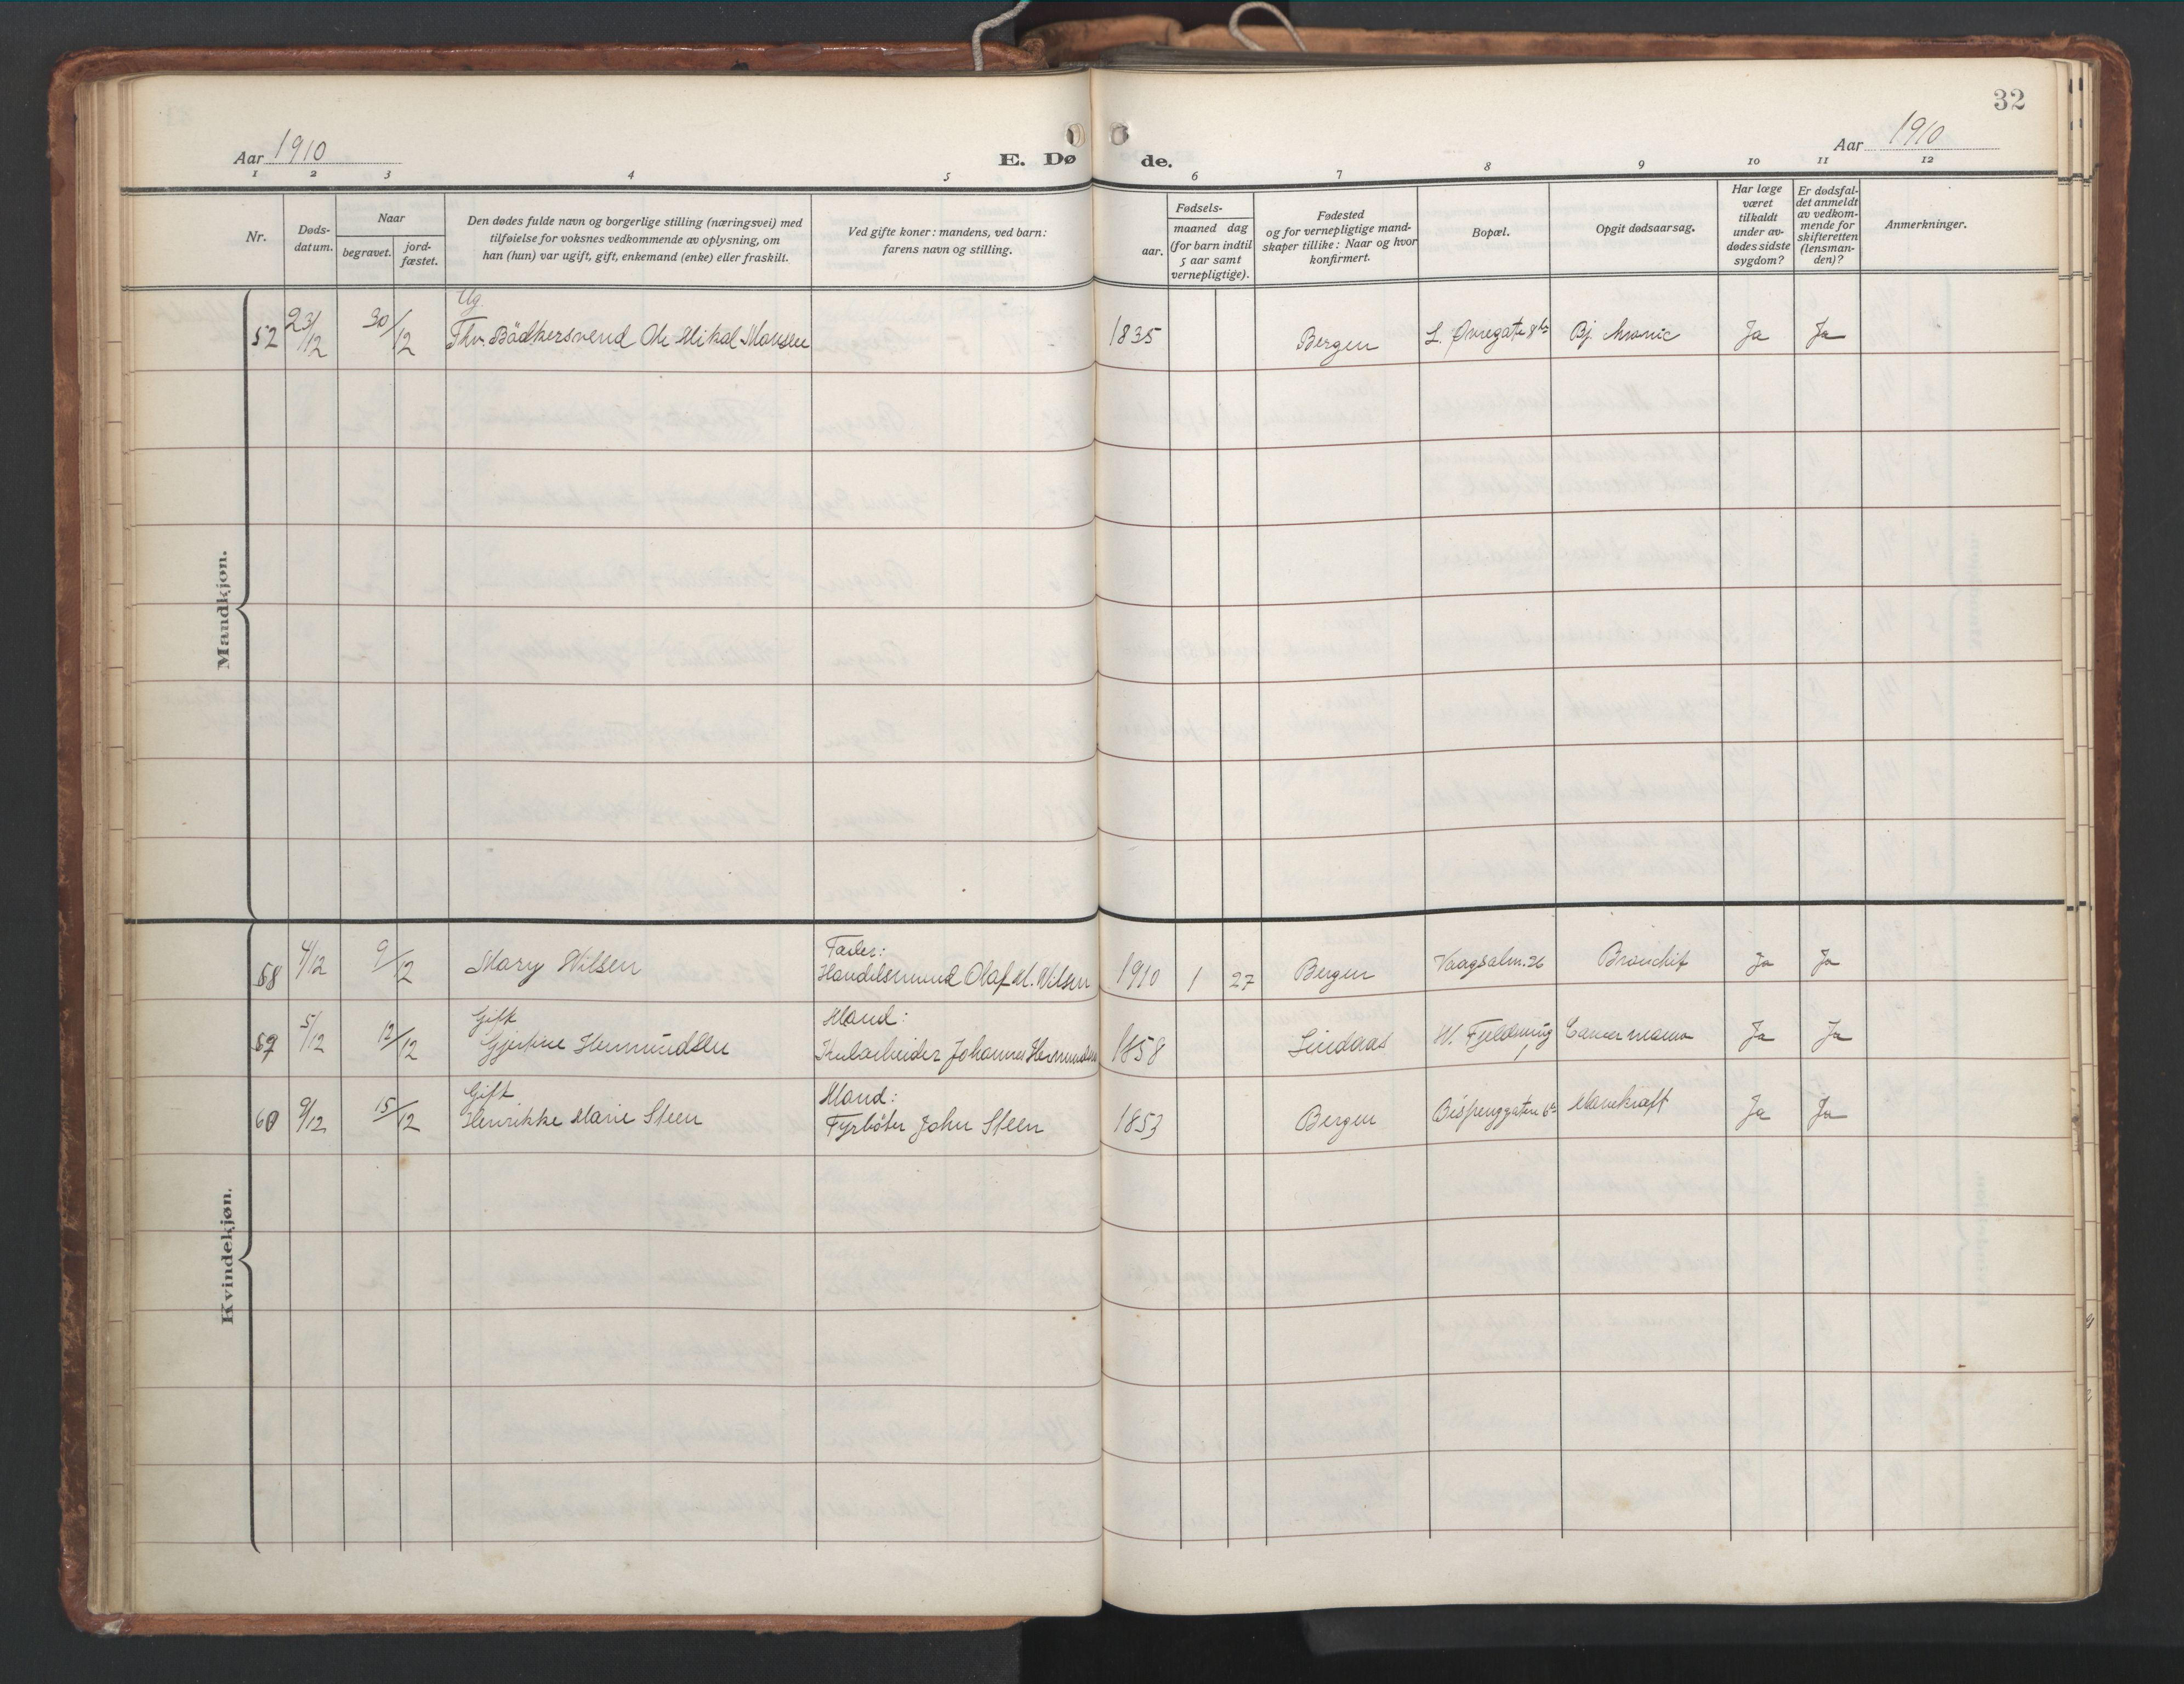 32
Aar 1910
E. Dø de.
Aar 1910
1 2 3 4 5 6 7 8 9 10 11 12
Nr.
Døds-
datum.
Naar
begravet.
jord-
fæstet.
Den dødes fulde navn og borgerlige stilling (næringsvei) med
tilføielse for voksnes vedkommende av oplysning, om
han (hun) var ugift, gift, enkemand (enke) eller fraskilt.
Ved gifte koner: mandens, ved barn:
farens navn og stilling.
Fødsels-
aar.
maaned dag
(for barn indtil
5 aar samt
vernepligtige).
Fødested
og for vernepligtige mand-
skaper tillike: Naar og hvor
konfirmert.
Bopæl.
Opgit dødsaarsag.
Har læge
været
tilkaldt
under av-
dødes sidste
sygdom?
Er dødsfal-
det anmeldt
av vedkom-
mende for
skifteretten
(lensman-
den)?
Anmerkninger.
Mandkjøn.
Ug.
52 23/12 30/12 Fhv. Bödkersvend Ole Mikal Hansen 1835 Bergen L. Øvregate 8 Ja Ja
Kvindekjøn.
Fader:
58 4/12 9/12 Mary Nilsen Handelsmand Olaf M. Nilsen 1910 1 27 Bergen Vaagsalm. 26 Bronchit Ja Ja
Gift Mand:
59 5/12 12/12 Gjertine Hermundsen Kularbeider Johannes Hermundsen 1858 Lindaas Cancer mamma Ja Ja
Gift Mand:
60 9/12 15/12 Henrikke Marie Steen Fyrbøter John Steen 1853 Bergen Mavekræft Ja Ja